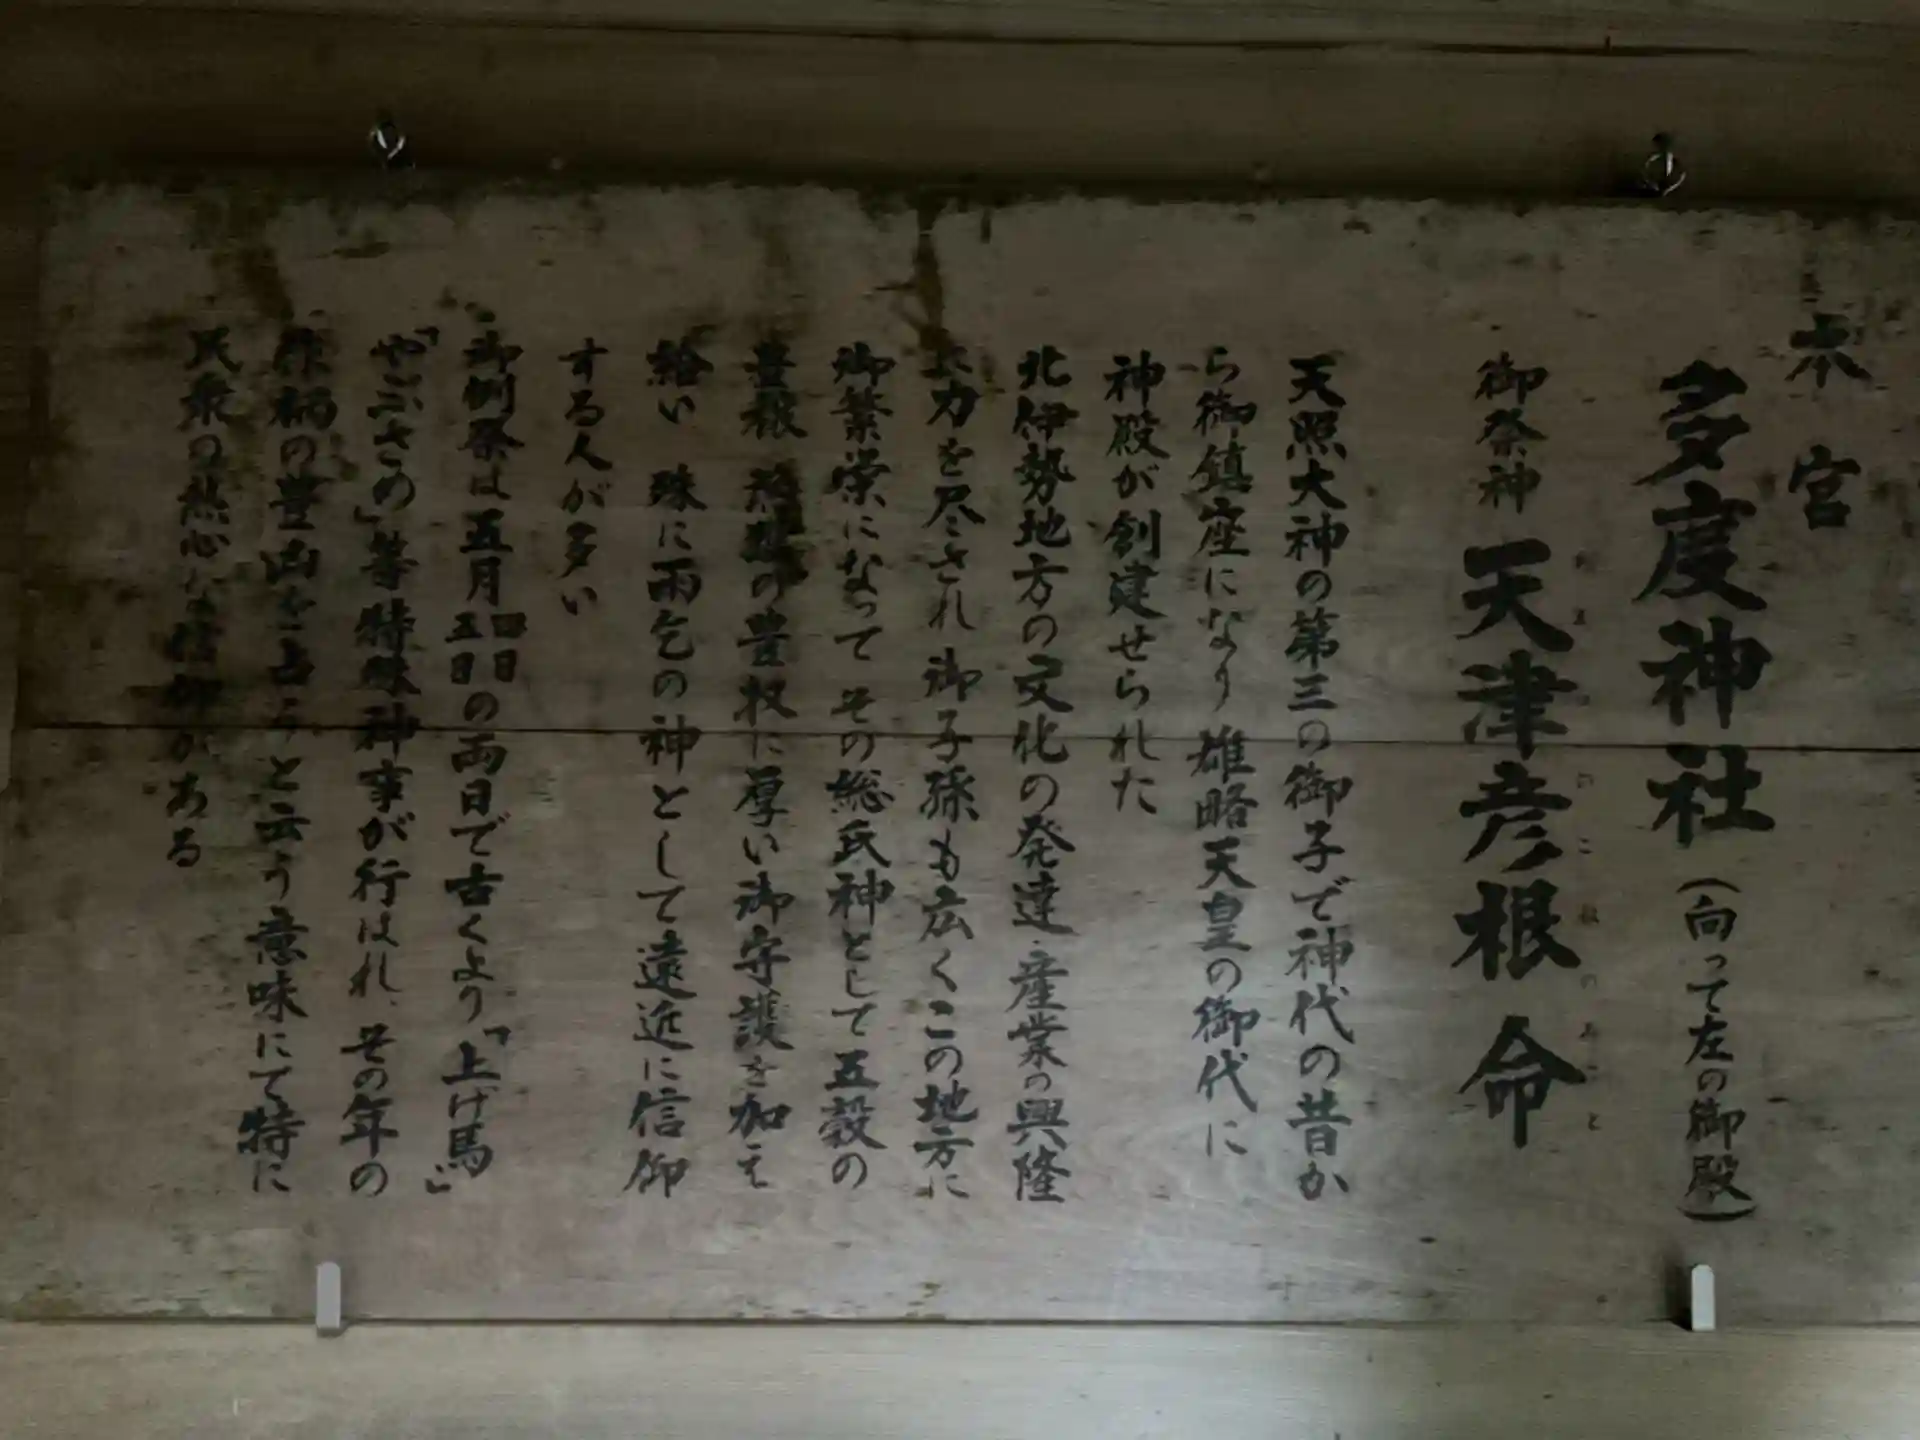 本宮
多度神社（向って左の御殿）
御祭神 天津彦根命
あまつひこねのみこと
天照大神の第三の御子で神代の昔か
ら御鎮座になり雄略天皇の御代に
神殿が創建せられた
北伊勢地方の文化の発達、産業の興隆
に力を尽され御子孫も広くこの地方に
御繁栄になって その総氏神として五穀の
豊穣 の豊收に厚い御守護を加え
給い 殊に雨乞の神として遠近に信仰
する人が多い
御例祭は五月四日五日の両日で古くより「上げ馬」
「やぶさめ」等特殊神事が行はれ、その年の
作柄の豊凶を占うと云う意味にて特に
民衆の熱心な信仰がある